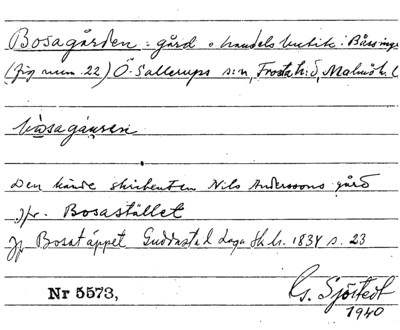 Bosagården: gård o handelsbutik i Båssinge
(fig num. 22) Ö. Sallerups s:n, Frosta h:d, Malmöh. l
bòsagáuren
Den kände skribenten Nils Anderssons gård
jfr. Bosastället
Jfr Bosatäppet Guddastad Laga Sk h. 1834 s. 23
Nr 5573,
G. Sjöstedt
1940